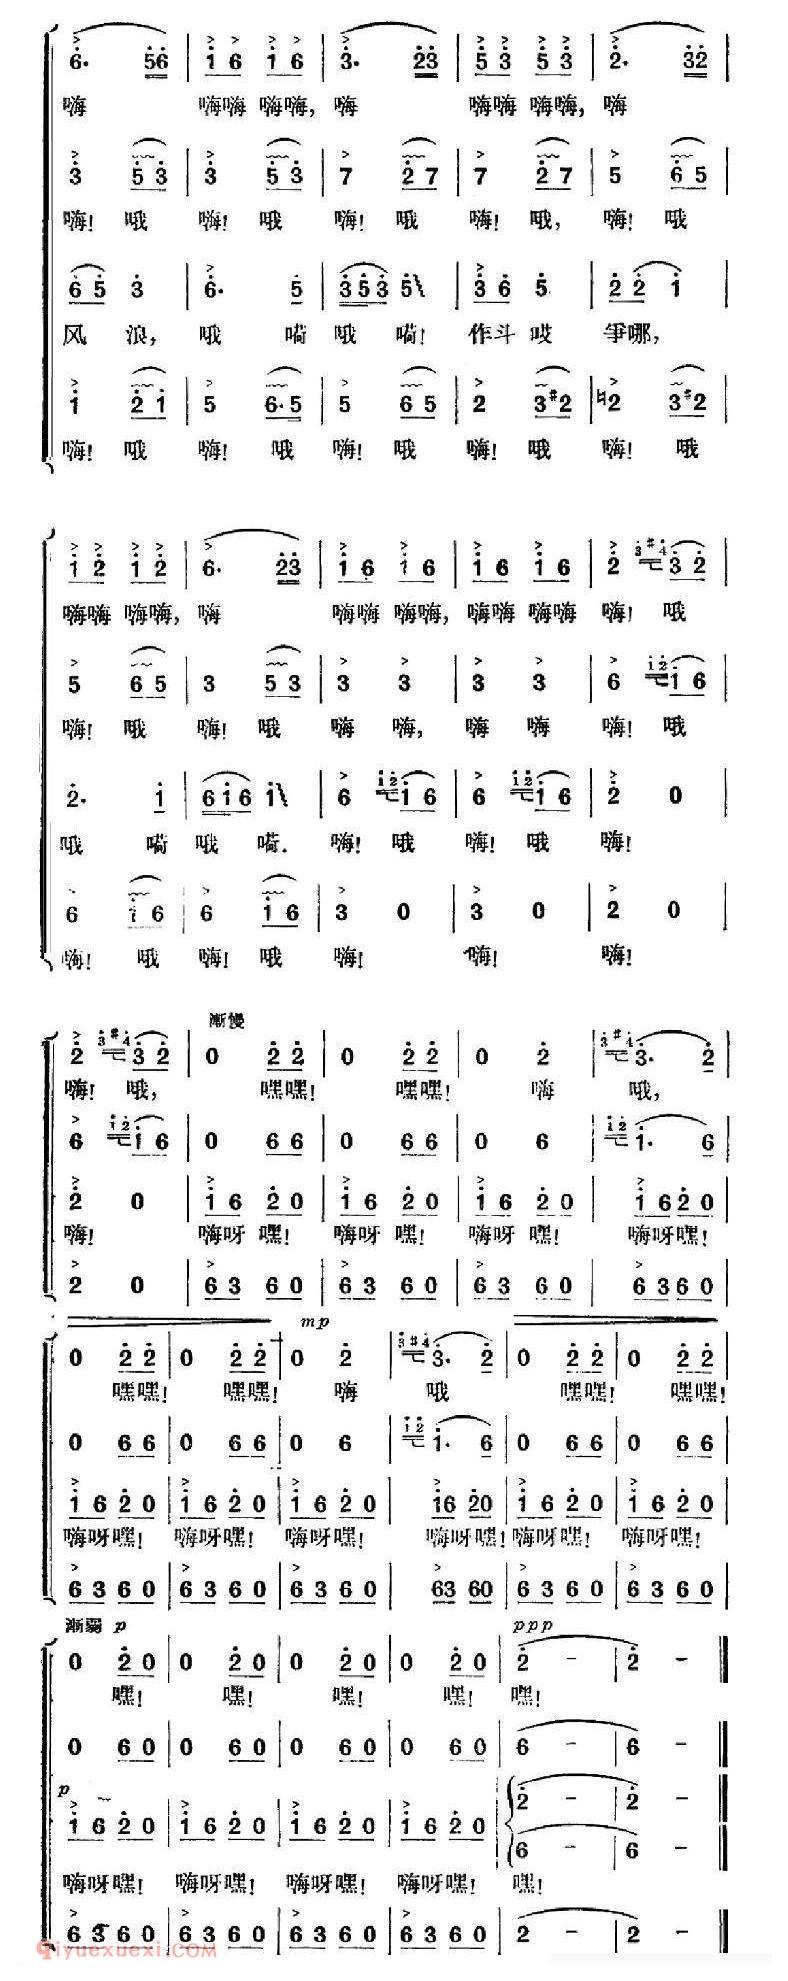 6· 56 | 1 6 1 6 | 3· 23 | 5 3 5 3 | 2· 32 |
嗨 嗨嗨 嗨嗨, 嗨 嗨嗨 嗨嗨, 嗨
3 5 3 | 3 5 3 | 7 2 7 | 7 2 7 | 5 6 5
嗨! 哦 嗨! 哦 嗨! 哦 嗨! 哦, 嗨! 哦
6 5 3 | 6· 5 | 3 5 3 5 | 3 6 5 | 2 2 1
风 浪, 哦 嗬 哦 嗬! 作斗 哎 争哪,
1 2 1 | 5 6·5 | 5 6 5 | 2 3 #2 | ♮2 3 #2
嗨! 哦 嗨! 哦 嗨! 哦 嗨! 哦 嗨! 哦
1 2 1 2 | 6· 23 | 1 6 1 6 | 1 6 1 6 | 2 3#4 3 2 |
嗨嗨 嗨嗨, 嗨 嗨嗨 嗨嗨, 嗨嗨 嗨嗨 嗨! 哦
5 6 5 | 3 5 3 | 3 3 | 3 3 | 6 12 1 6
嗨! 哦 嗨! 哦 嗨 嗨, 嗨 嗨 嗨! 哦
2· 1 | 6 1 6 1 | 6 12 1 6 | 6 12 1 6 | 2 0
哦 嗬 哦 嗬. 嗨! 哦 嗨! 哦 嗨!
6 1 6 | 6 1 6 | 3 0 | 3 0 | 2 0
嗨! 哦 嗨! 哦 嗨! 嗨! 嗨!
渐慢
2 3#4 3 2 | 0 2 2 | 0 2 2 | 0 2 | 3#4 3· 2 |
嗨! 哦, 嘿嘿! 嘿嘿! 嗨 哦,
6 12 1 6 | 0 6 6 | 0 6 6 | 0 6 | 12 1· 6
2 0 | 1 6 2 0 | 1 6 2 0 | 1 6 2 0 | 1 6 2 0
嗨! 嗨呀 嘿! 嗨呀 嘿! 嗨呀 嘿! 嗨呀嘿!
2 0 | 6 3 6 0 | 6 3 6 0 | 6 3 6 0 | 6 3 6 0
mp
0 2 2 | 0 2 2 | 0 2 | 3#4 3· 2 | 0 2 2 | 0 2 2 |
嘿嘿! 嘿嘿! 嗨 哦 嘿嘿! 嘿嘿!
0 6 6 | 0 6 6 | 0 6 | 12 1· 6 | 0 6 6 | 0 6 6
1 6 2 0 | 1 6 2 0 | 1 6 2 0 | 16 20 | 1 6 2 0 | 1 6 2 0
嗨呀嘿! 嗨呀嘿! 嗨呀嘿! 嗨呀嘿! 嗨呀嘿! 嗨呀嘿!
6 3 6 0 | 6 3 6 0 | 6 3 6 0 | 63 60 | 6 3 6 0 | 6 3 6 0
渐弱 p ppp
0 2 0 | 0 2 0 | 0 2 0 | 0 2 0 | 2 - | 2 - ‖
嘿! 嘿! 嘿! 嘿! 嘿!
0 6 0 | 0 6 0 | 0 6 0 | 0 6 0 | 6 - | 6 - ‖
p
2 - | 2 -
1 6 2 0 | 1 6 2 0 | 1 6 2 0 | 1 6 2 0
6 - | 6 -
嗨呀嘿! 嗨呀嘿! 嗨呀嘿! 嗨呀嘿! 嘿!
6 3 6 0 | 6 3 6 0 | 6 3 6 0 | 6 3 6 0 | 2 - | 2 - ‖
Qiyuexuexi.COM